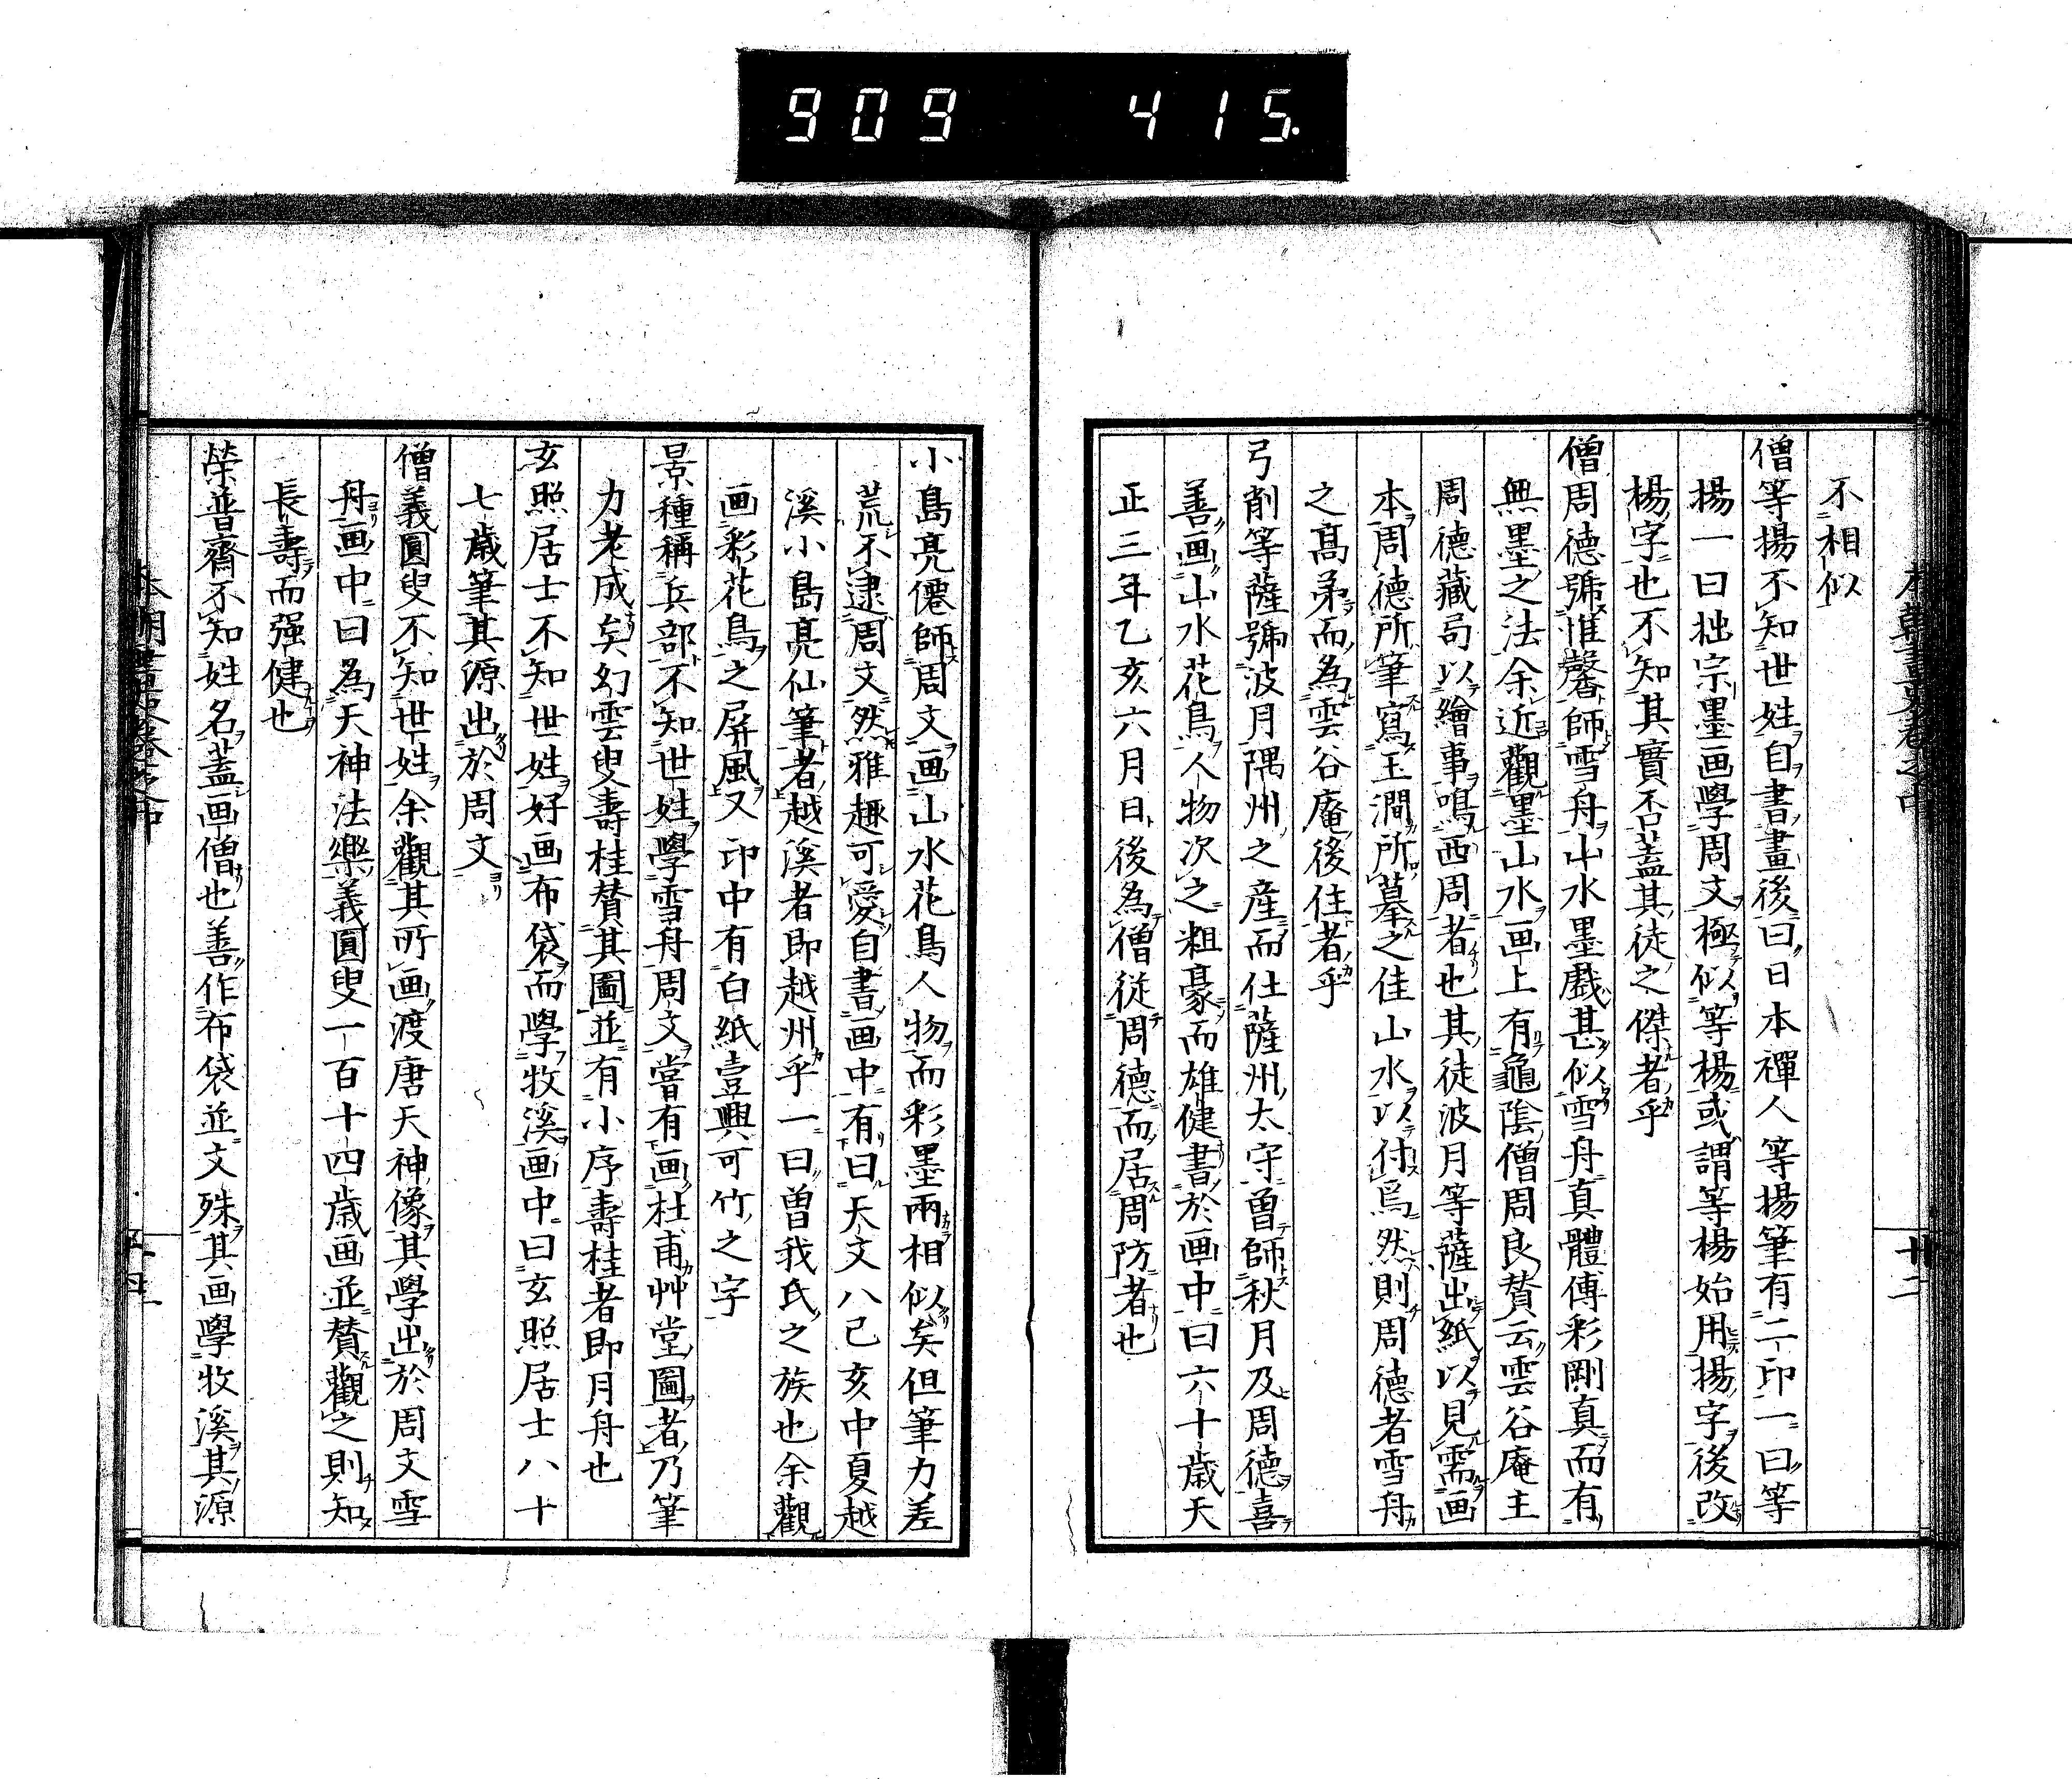 909 415.
本朝畫史卷之中 廿二
不相似
僧等揚不知世姓自書畫後曰日本禪人等揚筆有二印一曰等
揚一曰拙宗墨画學周文極似等楊或謂等楊始用揚字後改
楊字也不知其實否蓋其徒之傑者乎
僧周德號惟馨師雪舟山水墨戲甚似雪舟真體傳彩剛真而有
無墨之法余近觀墨山水画上有龜陰僧周良賛云雲谷庵主
周德藏局以繪事鳴西周者也其徒波月等薩出紙以見需画
本周德所筆寫玉澗所摹之佳山水以付焉然則周德者雪舟
之髙弟而為雲谷庵後住者乎
弓削等薩號波月隅州之産而仕薩州太守曽師秋月及周德喜
善画山水花鳥人物次之粗豪而雄健書於画中曰六十歳天
正三年乙亥六月日後為僧従周德而居周防者也
小島亮僊師周文画山水花鳥人物而彩墨兩相似矣但筆力差
荒不逮周文然雅趣可愛自書画中有曰天文八己亥中夏越
溪小島亮仙筆者越溪者即越州乎一曰曽我氏之族也余觀
画彩花鳥之屏風又印中有白紙壹興可竹之字
景種稱兵部不知世姓學雪舟周文嘗有画杜甫艸堂圖者乃筆
力老成矣幻雲叟壽桂賛其圖並有小序壽桂者即月舟也
玄照居士不知世姓好画布袋而學牧溪画中曰玄照居士八十
七歳筆其源出於周文
僧義圓叟不知世姓余觀其所画渡唐天神像其學出於周文雪
舟画中曰為天神法樂義圓叟一百十四歳画並賛觀之則知
長壽而强健也
榮普齋不知姓名蓋画僧也善作布袋並文殊其画學牧溪其源
本朝畫史卷之中